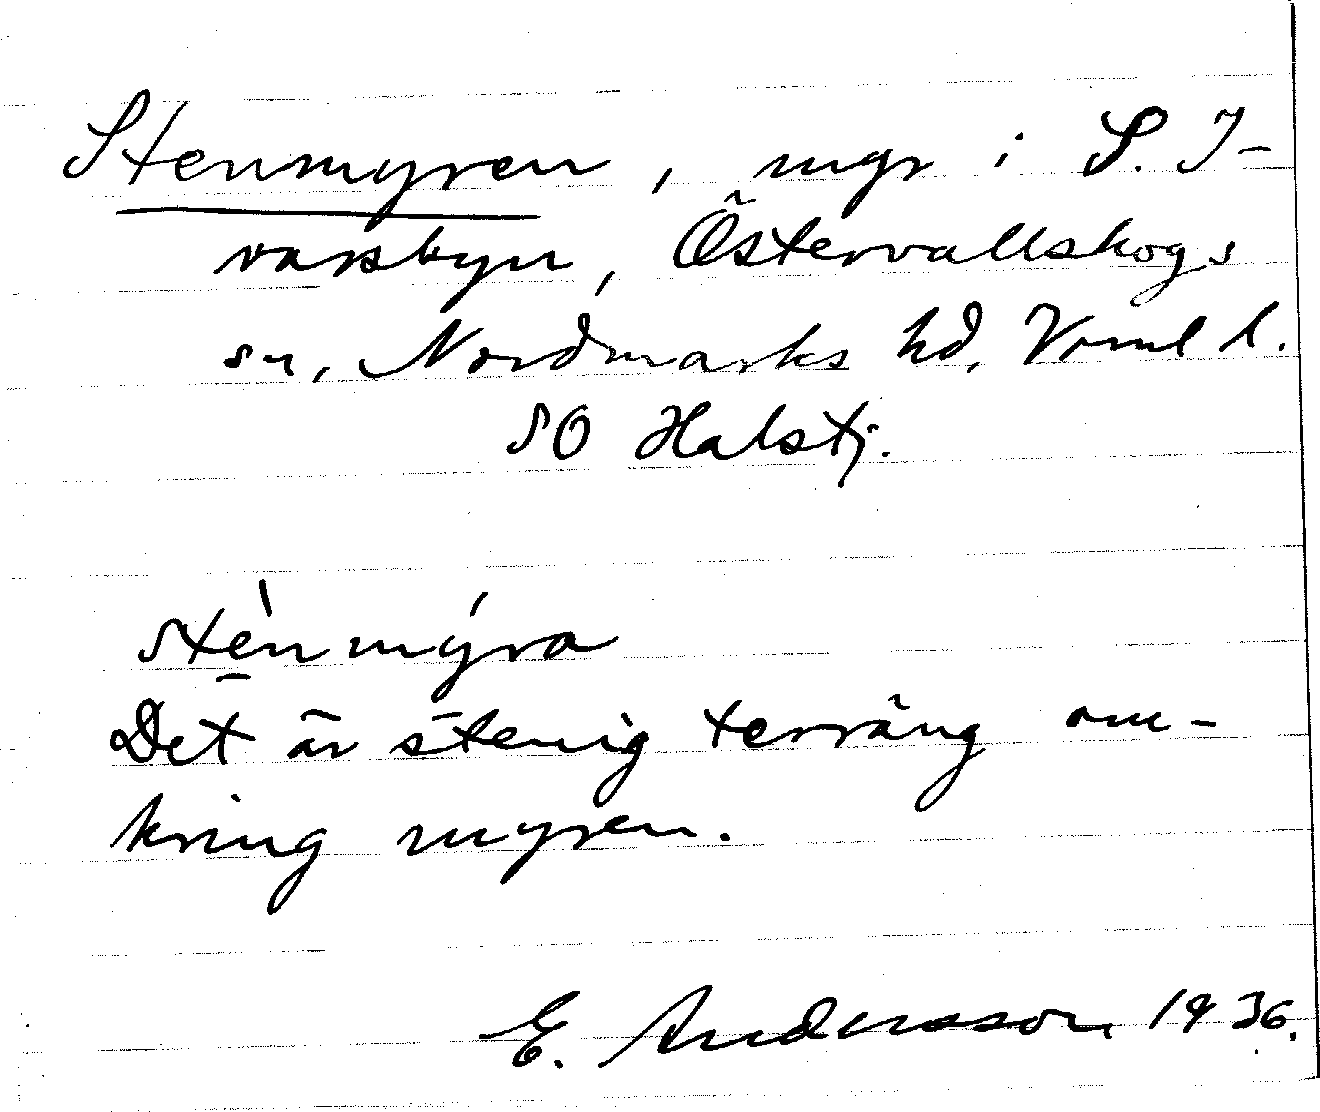 Stenmyren, myr i S. I-
varsbyn, Östervallskogs
sn, Nordmarks hd, Värml l.
SO Halstj.
stènmýra
Det är stenig terräng om-
kring myren.
E. Andersson 1936.